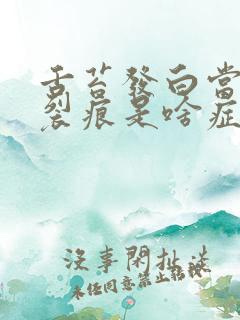 舌苔發白當
裂痕是啥症
沒事閑扯淡
未經同意禁止轉載